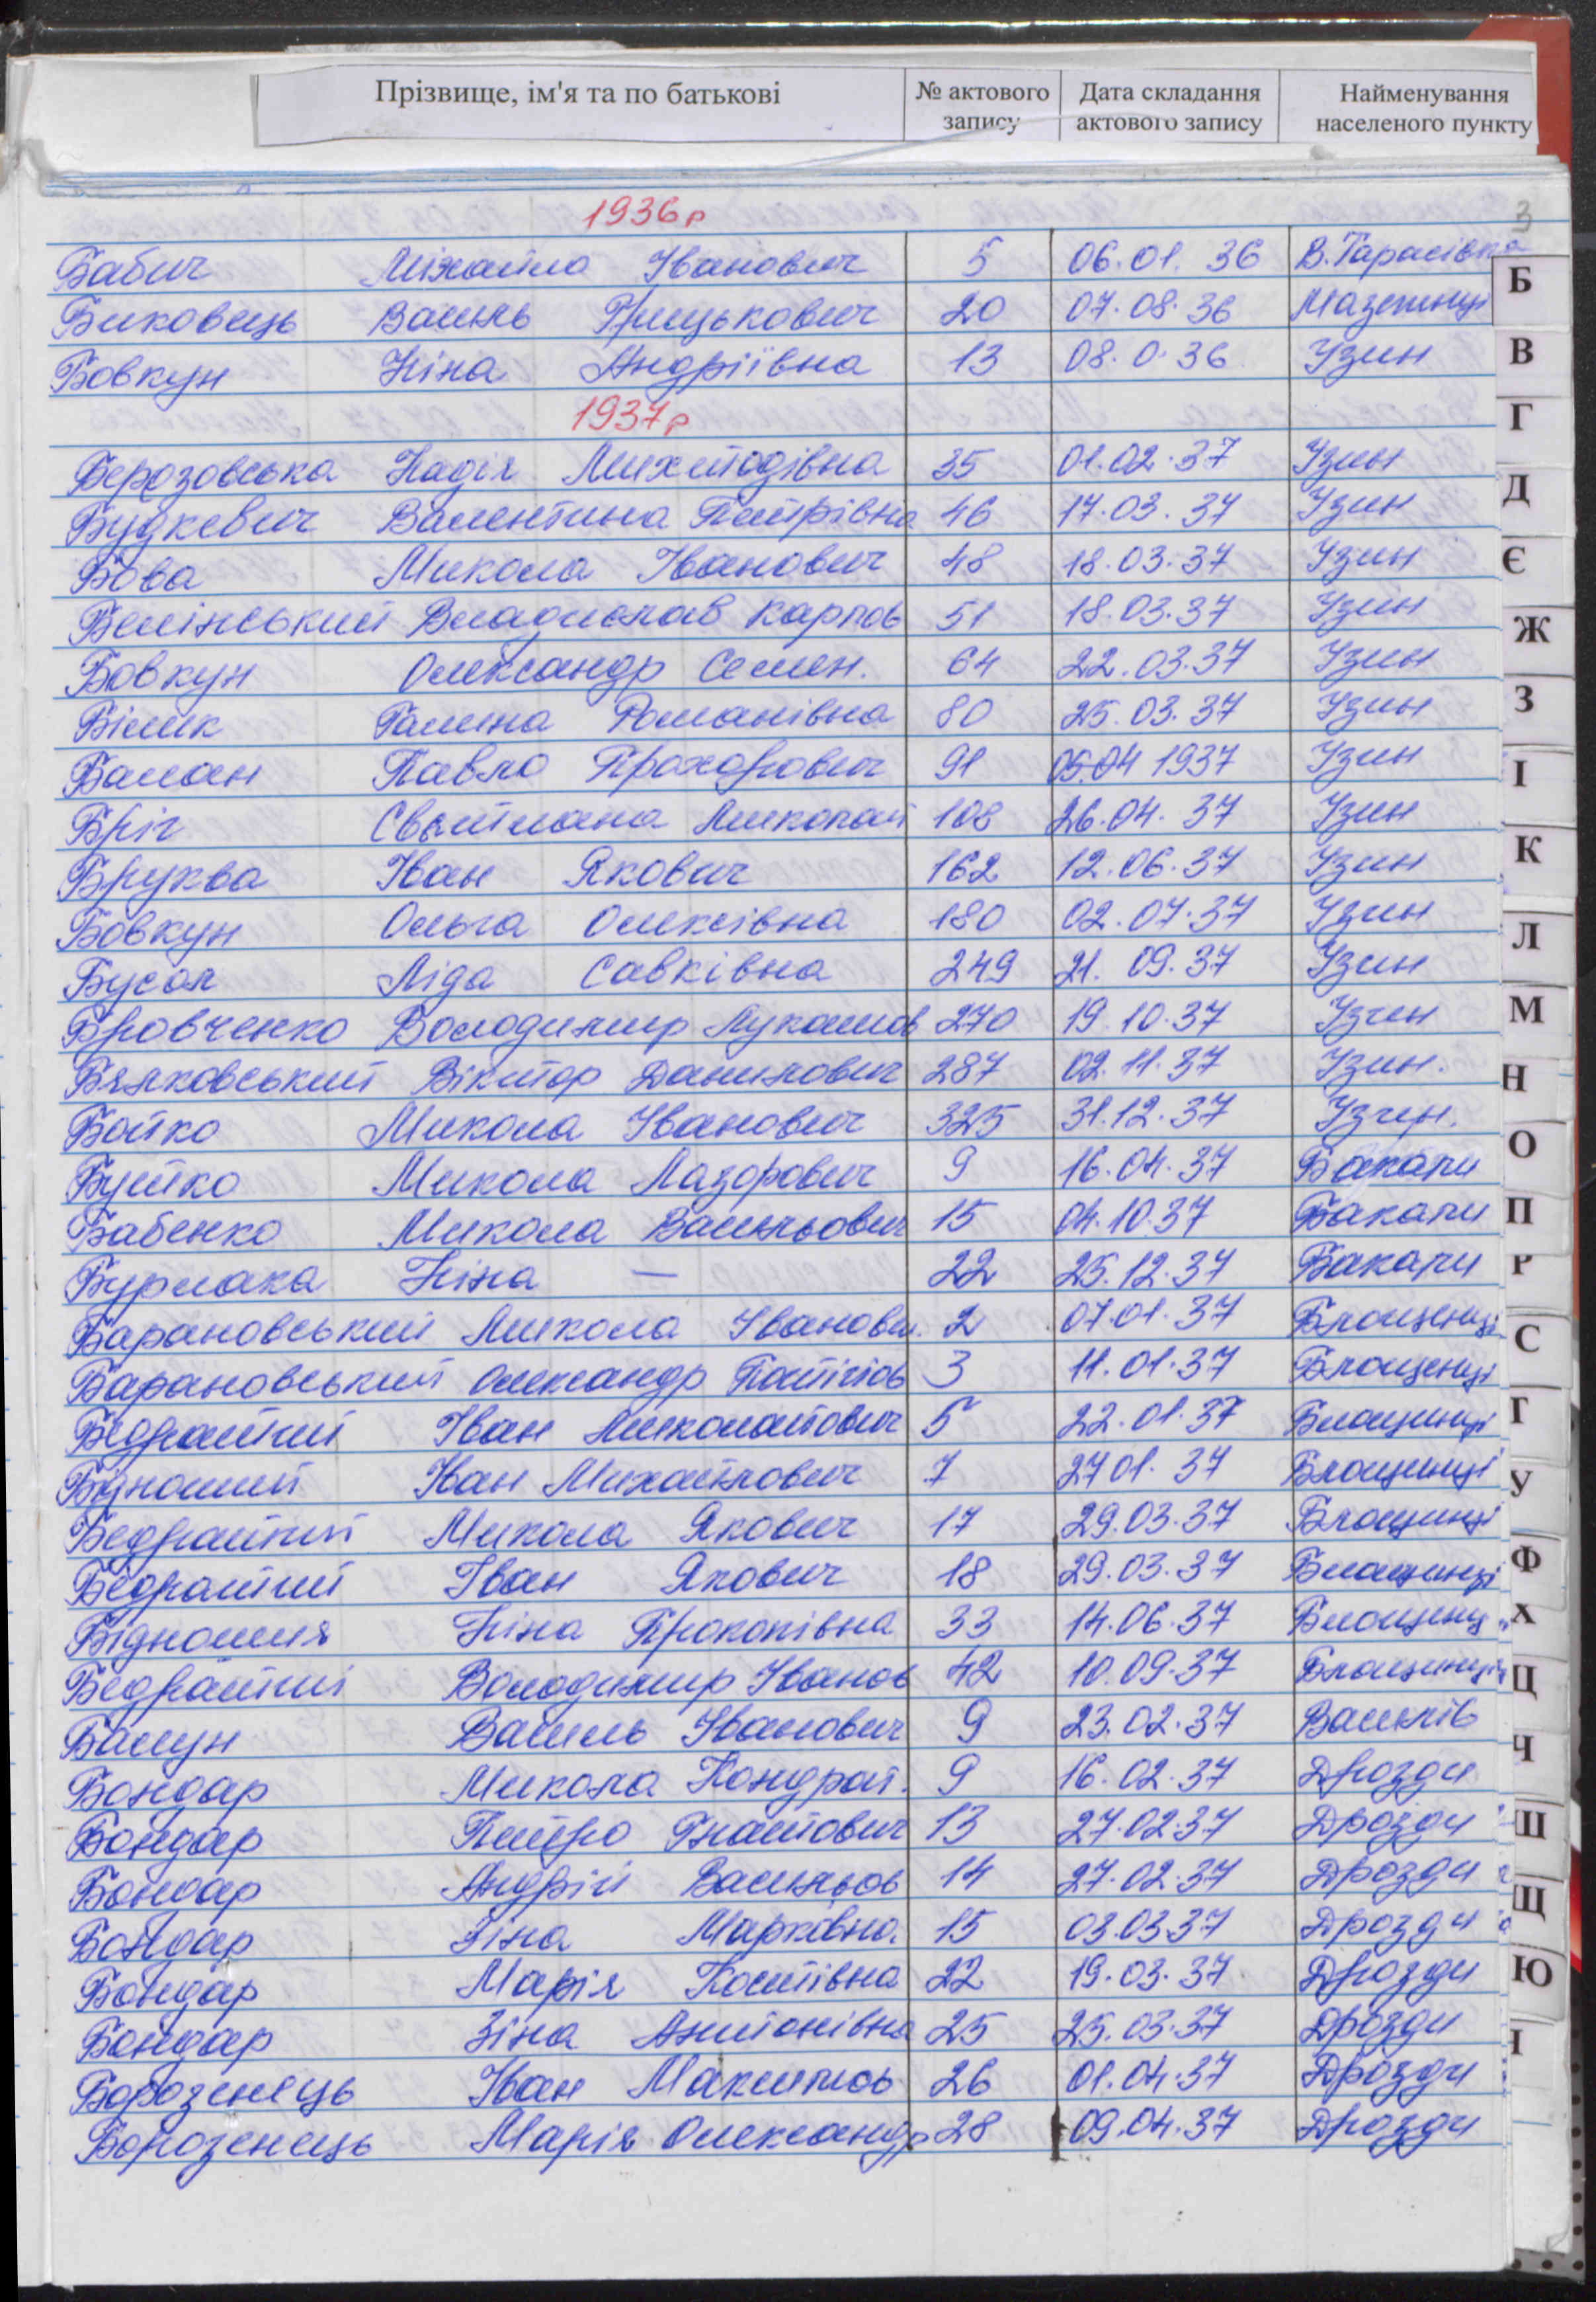 Прізвище, ім'я та по батькові № актового запису Дата складання актового запису Найменування населеного пункту
3
1936р
Бабич Міхайло Іванович 5 06.01. 36 В.Тарасівка
Биковець Василь Грицькович 20 07.08.36 Мазепинці
Бовкун Ніна Андріївна 13 08.0.36 Узин
1937р
Березовська Надія Михтодівна 35 01.02.37 Узин
Будкевич Валентина Петрівна 46 17.03.37 Узин
Бова Микола Іванович 48 18.03.37 Узин
Велінський Владислав Карпов 51 18.03.37 Узин
Бовкун Олександр Семен. 64 22.03.37 Узин
Білик Галина Романівна 80 25.03.37 Узин
Балан Павло Прохорович 91 05.04 1937 Узин
Бріг Світлана Миколай 108 26.04.37 Узин
Бруква Іван Якович 162 12.06.37 Узин
Бовкун Ольга Олексівна 180 02.07.37 Узин
Бусол Ліда Савківна 249 21.09.37 Узин
Бровченко Володимир Лукашов 270 19.10.37 Узин
Бялковський Віктор Данилович 287 02.11.37 Узин.
Бойко Микола Іванович 325 31.12.37 Узин.
Буйко Микола Лазорович 9 16.04.37 Бакали
Бабенко Микола Васильович 15 04.10.37 Бакали
Бурлака Ніна — 22 25.12.37 Бакали
Барановський Микола Іванович. 2 07.01.37 Блощенці
Барановський Олександр 3 11.01.37 Блощенці
Бедратий Іван Миколайович 5 22.01.37 Блощинці
Іван Михайлович 7 27 01.37 Блощинці
Бедратий Микола Якович 17 29.03.37 Блощинці
Бедратий Іван Якович 18 29.03.37 Блощинці
Бідношия Ніна Прокопівна 33 14.06.37 Блощинц
Бедратий Володимир Іванов 42 10.09.37 Блощинці
Балун Василь Іванович 9 23.02.37 Василів
Бондар Микола Кондрат. 9 16.02.37 Дрозди
Бондар Петро Гнатович 13 27.02.37 Дрозди
Бондар Андрій Васильов 14 27.02.37 Дрозди
Бондар Зіна Марківна 15 03.03.37 Дрозди
Бондар Марія Костівна 22 19.03.37 Дрозди
Бондар Зіна Антонівна 25 25.03.37 Дрозди
Борозенець Іван Максимов 26 01.04.37 Дрозди
Борозенець Марія Олександр 28 09.04.37 Дрозди
Б
В
Г
Д
Є
Ж
З
І
К
Л
М
Н
О
П
Р
С
Т
У
Ф
Х
Ц
Ч
Ш
Щ
Ю